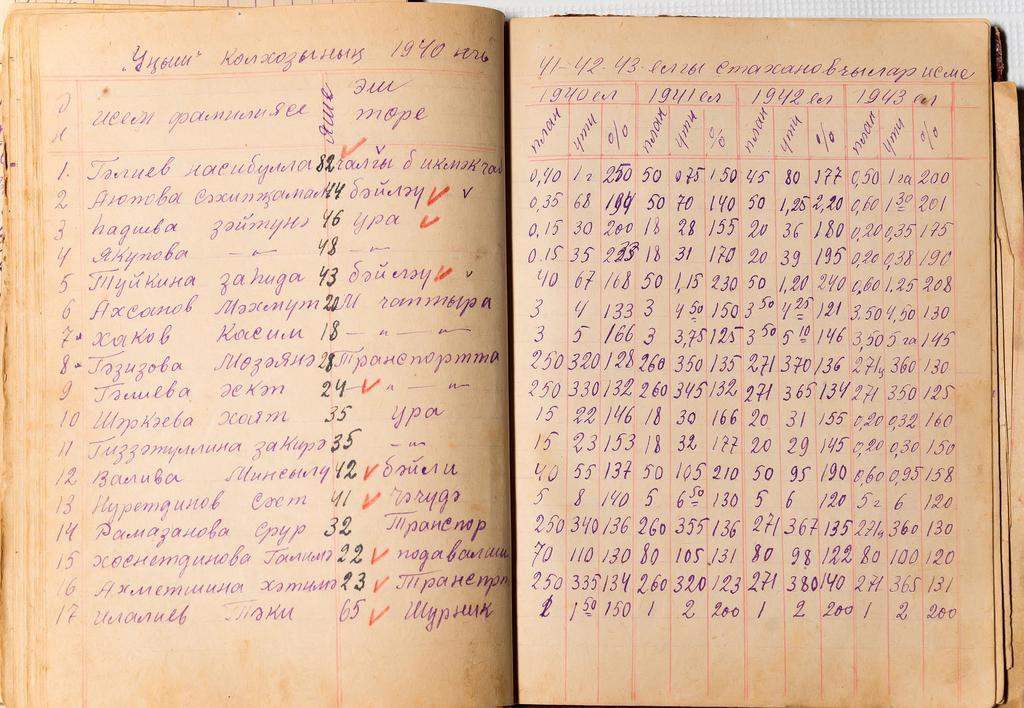 "Уңыш" колхозының 1940 нчы 41-42-43-елгы стахановчылар исме
№ исем фамилиясе яше эш төре 1940 ел 1941 ел 1942 ел 1943 ел
план үтү % план үтү % план үтү % план үтү %
1. Гәлиев Насибулла 82 чалгы 0,40 1 г 250 50 0,75 150 45 80 177 0,50 1 га 200
2 Аюпова 44 бәйләү 0,35 68 194 50 70 140 50 1,25 2,20 0,60 1 30 201
3 Һадиева Зәйтүнә 46 ура 0,15 30 200 18 28 155 20 36 180 0,20 0,35 175
4 Якупова -„- 48 -„- 0.15 35 18 31 170 20 39 195 0,20 0,38 190
5 Туйкина Заһида 43 бәйләү 40 67 168 50 1,15 230 50 1,20 240 0,60 1.25 208
6 Ахсанов Мәхмут 20 М чаптыра 3 4 133 3 4 50 150 3 50 4 25 121 3.50 4,50 130
7 Хаков Касим 18 -„-„- 3 5 166 3 3,75 125 3 50 5 10 146 3,50 5 га 145
8 Гәзизова 28 Транспортта 250 320 128 260 350 135 271 370 136 271 360 130
9 Гәлиева 24 -„-„- 250 330 132 260 345 132 271 365 134 271 350 125
10 Шәркәева Хаят 35 ура 15 22 146 18 30 166 20 31 155 0,20 0,32 160
11 Гиззәтуллина Закирә 35 -„- 15 23 153 18 32 177 20 29 145 0,20 0,30 150
12 Валива Минсылу 42 бәйли 40 55 137 50 105 210 50 95 190 0,60 0,95 158
13 Нуретдинов 41 чәчүдә 5 8 140 5 6 50 130 5 6 120 5 г 6 120
14 Рамазанова Срур 32 Транспор 250 340 136 260 355 136 271 367 135 271 360 130
15 Хөснетдинова Галимә 22 подавалши 70 110 130 80 105 131 80 98 122 80 100 120
16 Ахметшина Хәтимә 23 Транспорт 250 335 134 260 320 123 271 380 140 271 365 131
17 Илалиев Тәки 65 Шурник 1 1 50 150 1 2 200 1 2 200 1 2 200